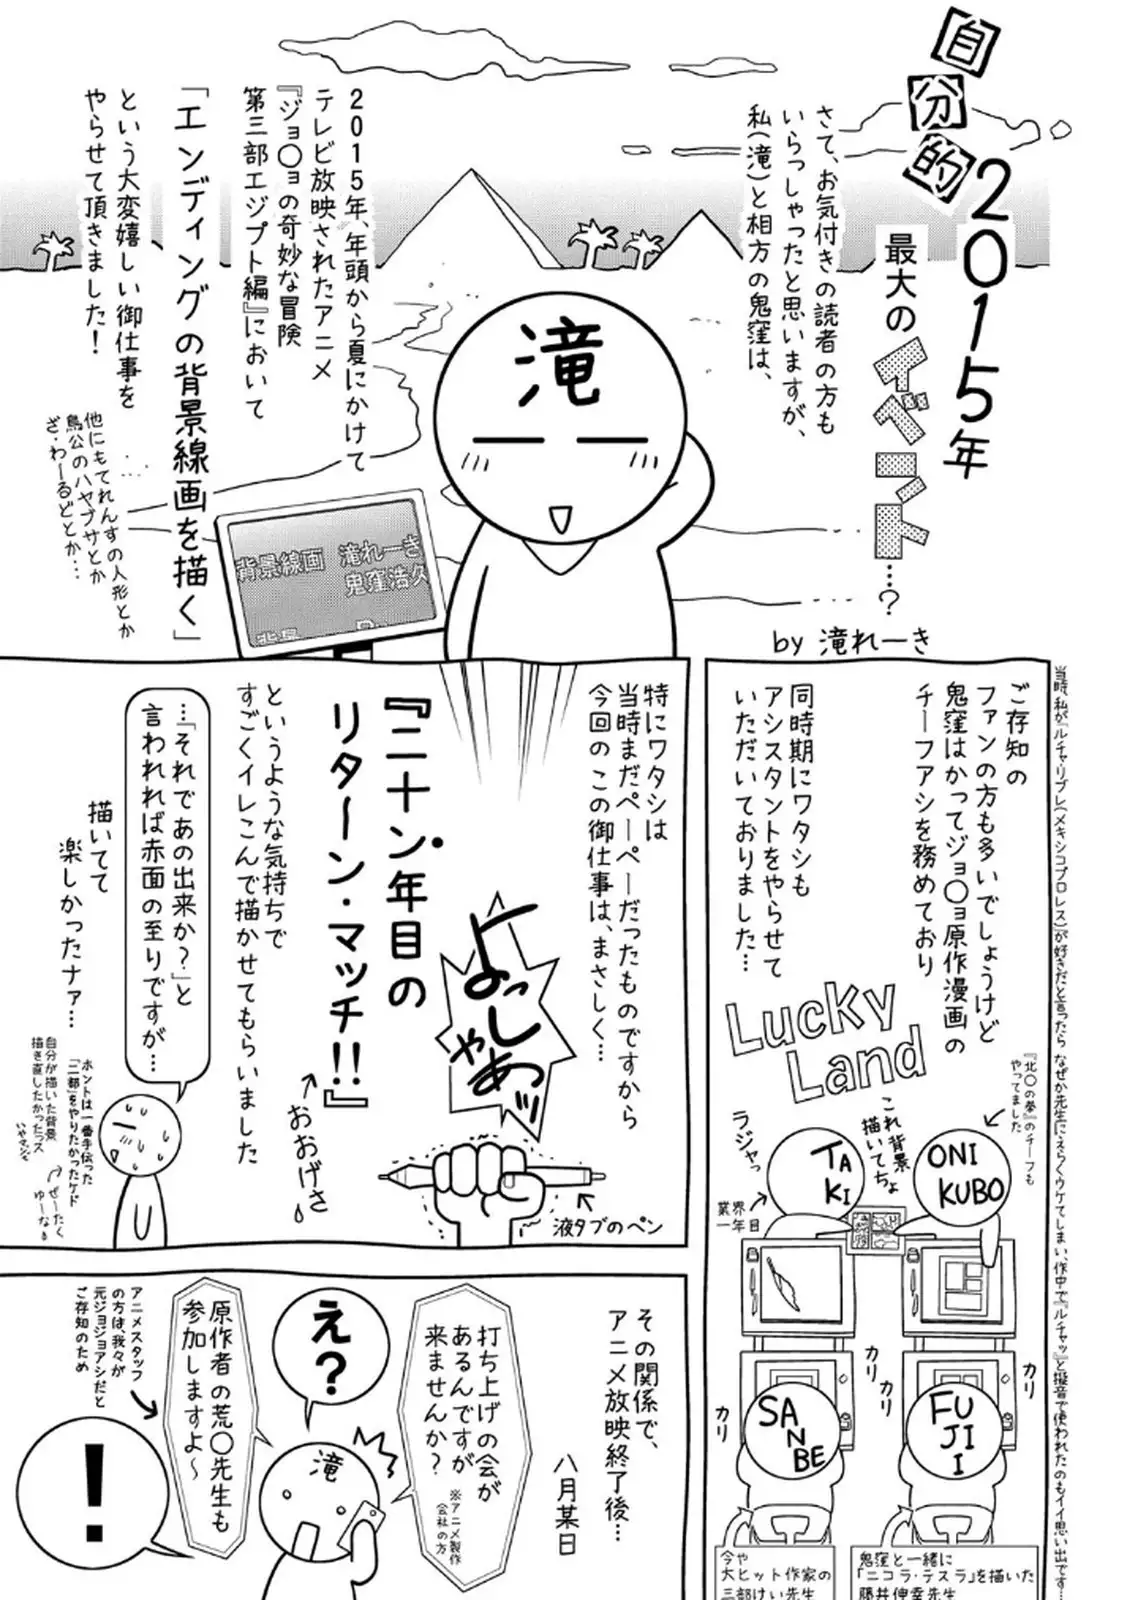 自分的
2015年
最大の
イベント…?
by 滝れーき
さて、お気付きの読者の方も
いらっしゃったと思いますが、
私(滝)と相方の鬼窪は、
2015年、年頭から夏にかけて
テレビ放映されたアニメ
『ジョ〇ョの奇妙な冒険
第三部エジプト編』において
「エンディングの背景線画を描く」
という大変嬉しい御仕事を
やらせて頂きました!
他にもてれんすの人形とか
鳥公のハヤブサとか
ざ・わーるどとか…
滝
背景線画 滝れーき
鬼窪浩久
背景
当時、私が『ルチャ・リブレ(メキシコプロレス)が好きだと言ったら なぜか先生にえらくウケてしまい、作中で『ルチャッ』と擬音で使われたのもイイ思い出です…
ご存知の
ファンの方も多いでしょうけど
鬼窪はかつてジョ〇ョ原作漫画の
チーフアシを務めており
同時期にワタシも
アシスタントをやらせて
いただいておりました…
Lucky
Land
『北〇の拳』のチーフも
やってました
ONI
KUBO
これ背景
描いてちょ
TA
KI
ラジャっ
業界
一年目
カリ
カリ
カリ
カリ
FU
JI
I
SA
N
BE
鬼窪と一緒に
「ニコラ・テスラ」を描いた
藤井伸幸先生
今や
大ヒット作家の
三部けい先生
特にワタシは
当時まだペーペーだったものですから
今回のこの御仕事は、まさしく…
『二十ン年目の
リターン・マッチ!!』
おおげさ
というような気持ちで
すごくイレこんで描かせてもらいました
よっしゃあッ
液タブのペン
…「それであの出来か?」と
言われれば赤面の至りですが…
描いてて
楽しかったナァ…
ホントは一番手伝った
「二部」をやりたかったケド
自分が描いた背景
描き直したかったっス
いやマジで
ぜーたく
ゆーな
その関係で、
アニメ放映終了後…
八月某日
打ち上げの会が
あるんですが
来ませんか?
※アニメ製作
会社の方
え?
滝
原作者の荒〇先生も
参加しますよ〜
アニメスタッフ
の方は、我々が
元ジョジョアシだと
ご存知のため
!